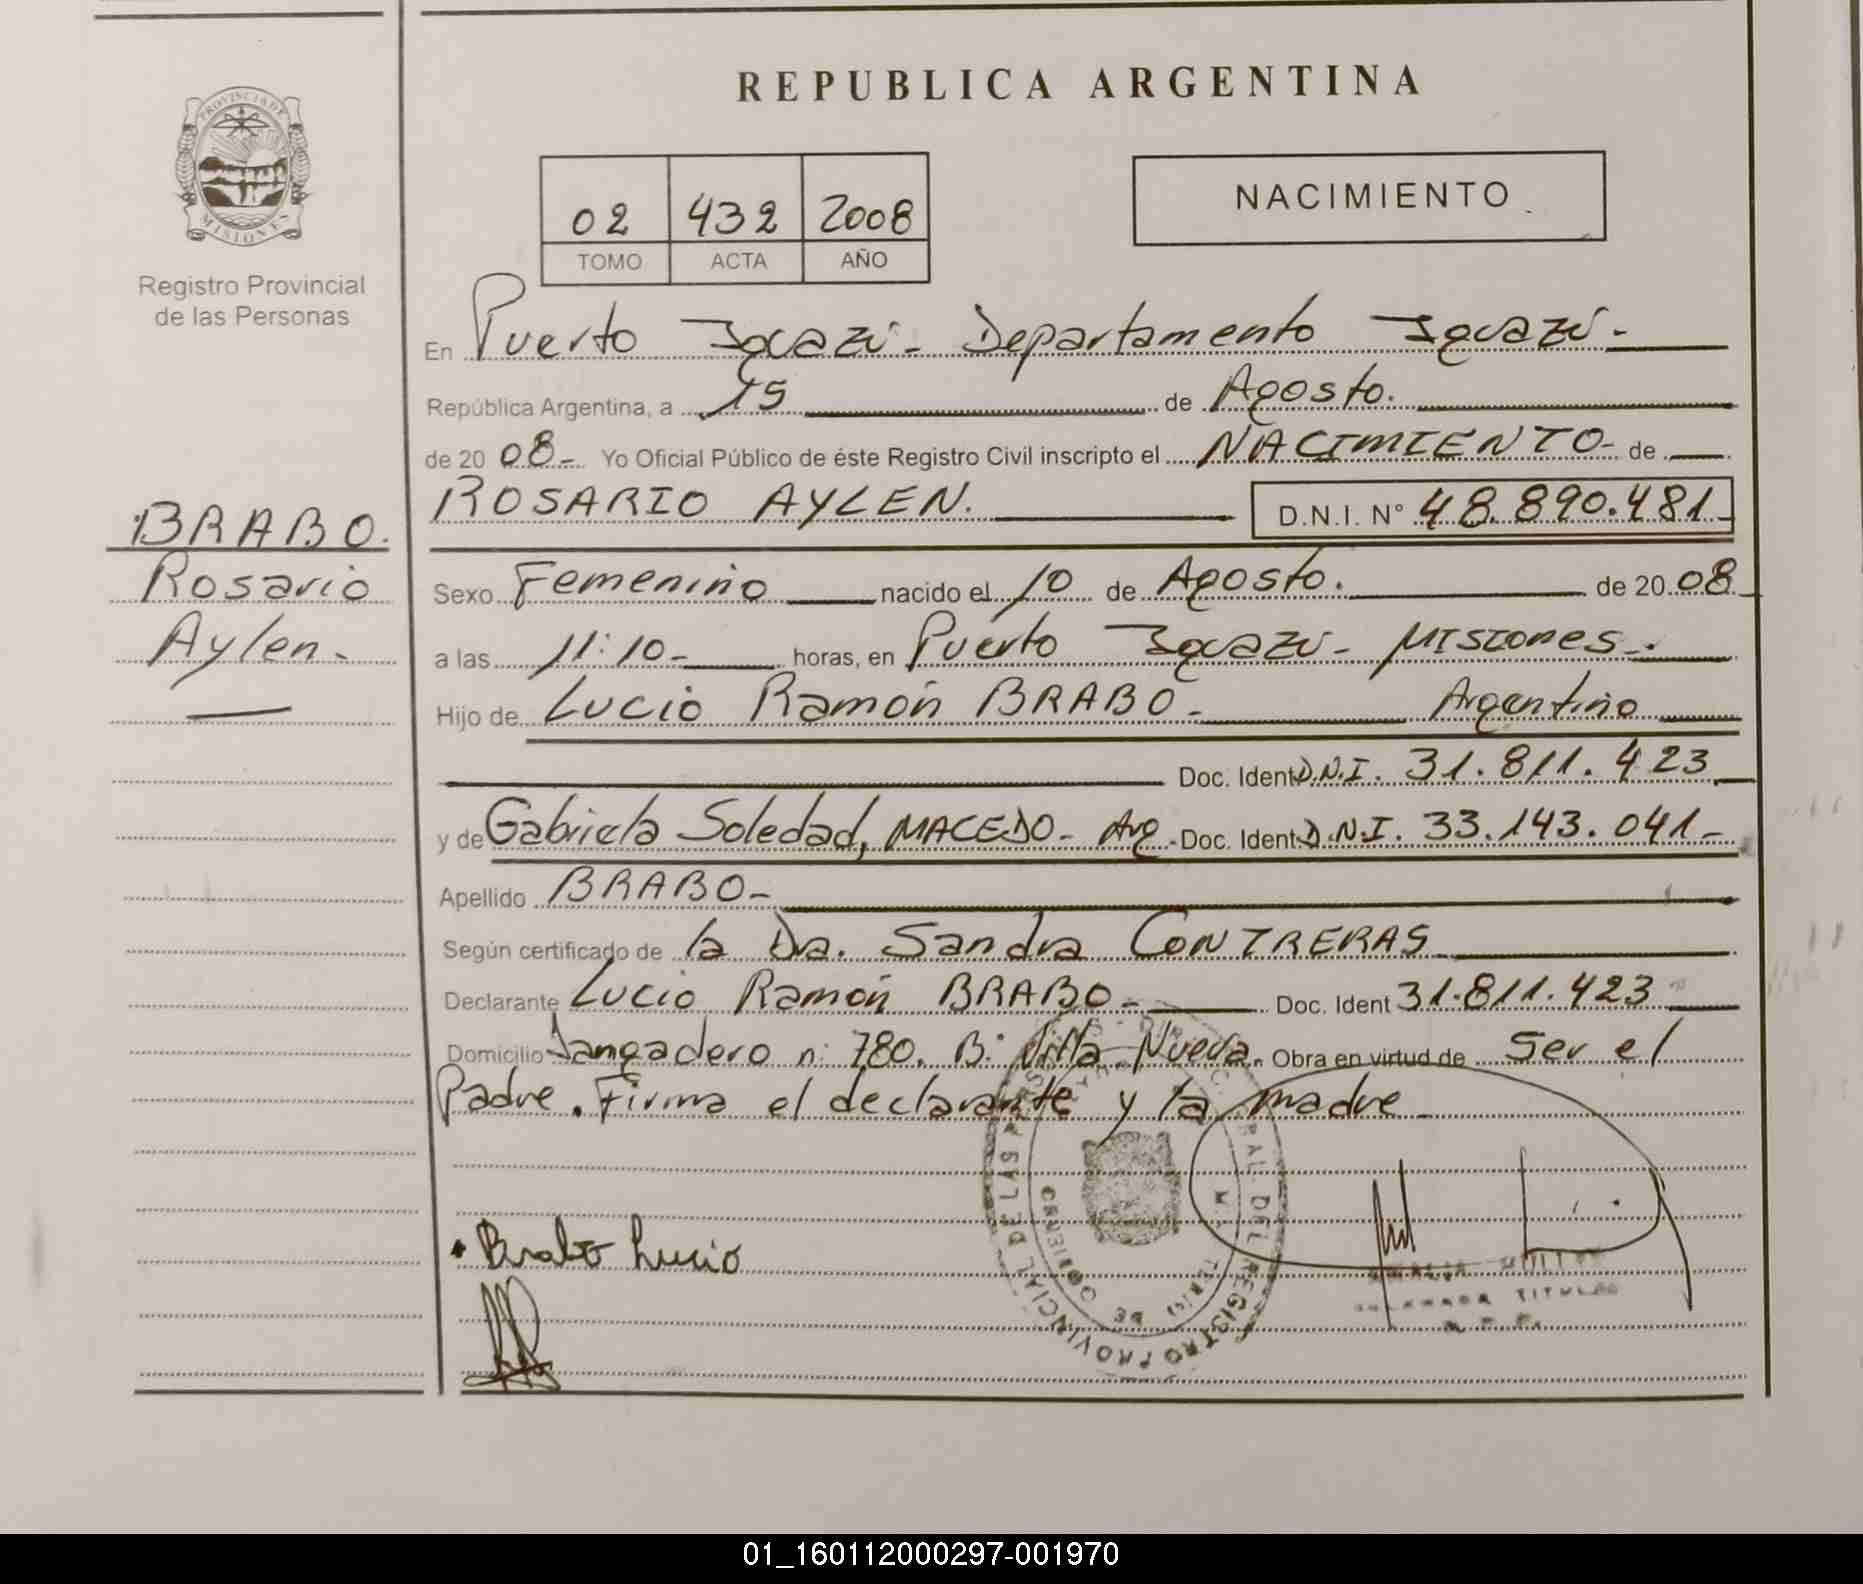 REPUBLICA ARGENTINA
PROVINCIA DE
MISIONES
Registro Provincial
de las Personas
NACIMIENTO
02 432 2008
TOMO ACTA AÑO
En Puerto Iguazú - Departamento Iguazú -
República Argentina, a 15 de Agosto.
de 20 08 - Yo Oficial Público de éste Registro Civil inscripto el NACIMIENTO - de
BRABO.
Rosario
Aylen -
ROSARIO AYLEN. D.N.I. N° 48.890.481 -
Sexo Femenino nacido el 10 de Agosto. de 20 08
a las 11:10 - horas, en Puerto Iguazú - MISIONES -.
Hijo de Lucio Ramón BRABO - Argentino
Doc. Ident D.N.I. 31.811.423
y de Gabriela Soledad, MACEDO - Arg - Doc. Ident D.N.I. 33.143.041 -
Apellido BRABO -
Según certificado de la Dra. Sandra CONTRERAS
Declarante Lucio Ramón BRABO - Doc. Ident 31.811.423
Domicilio Jangadero n: 780. B: Villa Nueva. Obra en virtud de Ser el
Padre. Firma el declarante y la madre
Brabo Lucio
REGISTRO PROVINCIAL DE LAS
TITULAR
01_160112000297-001970